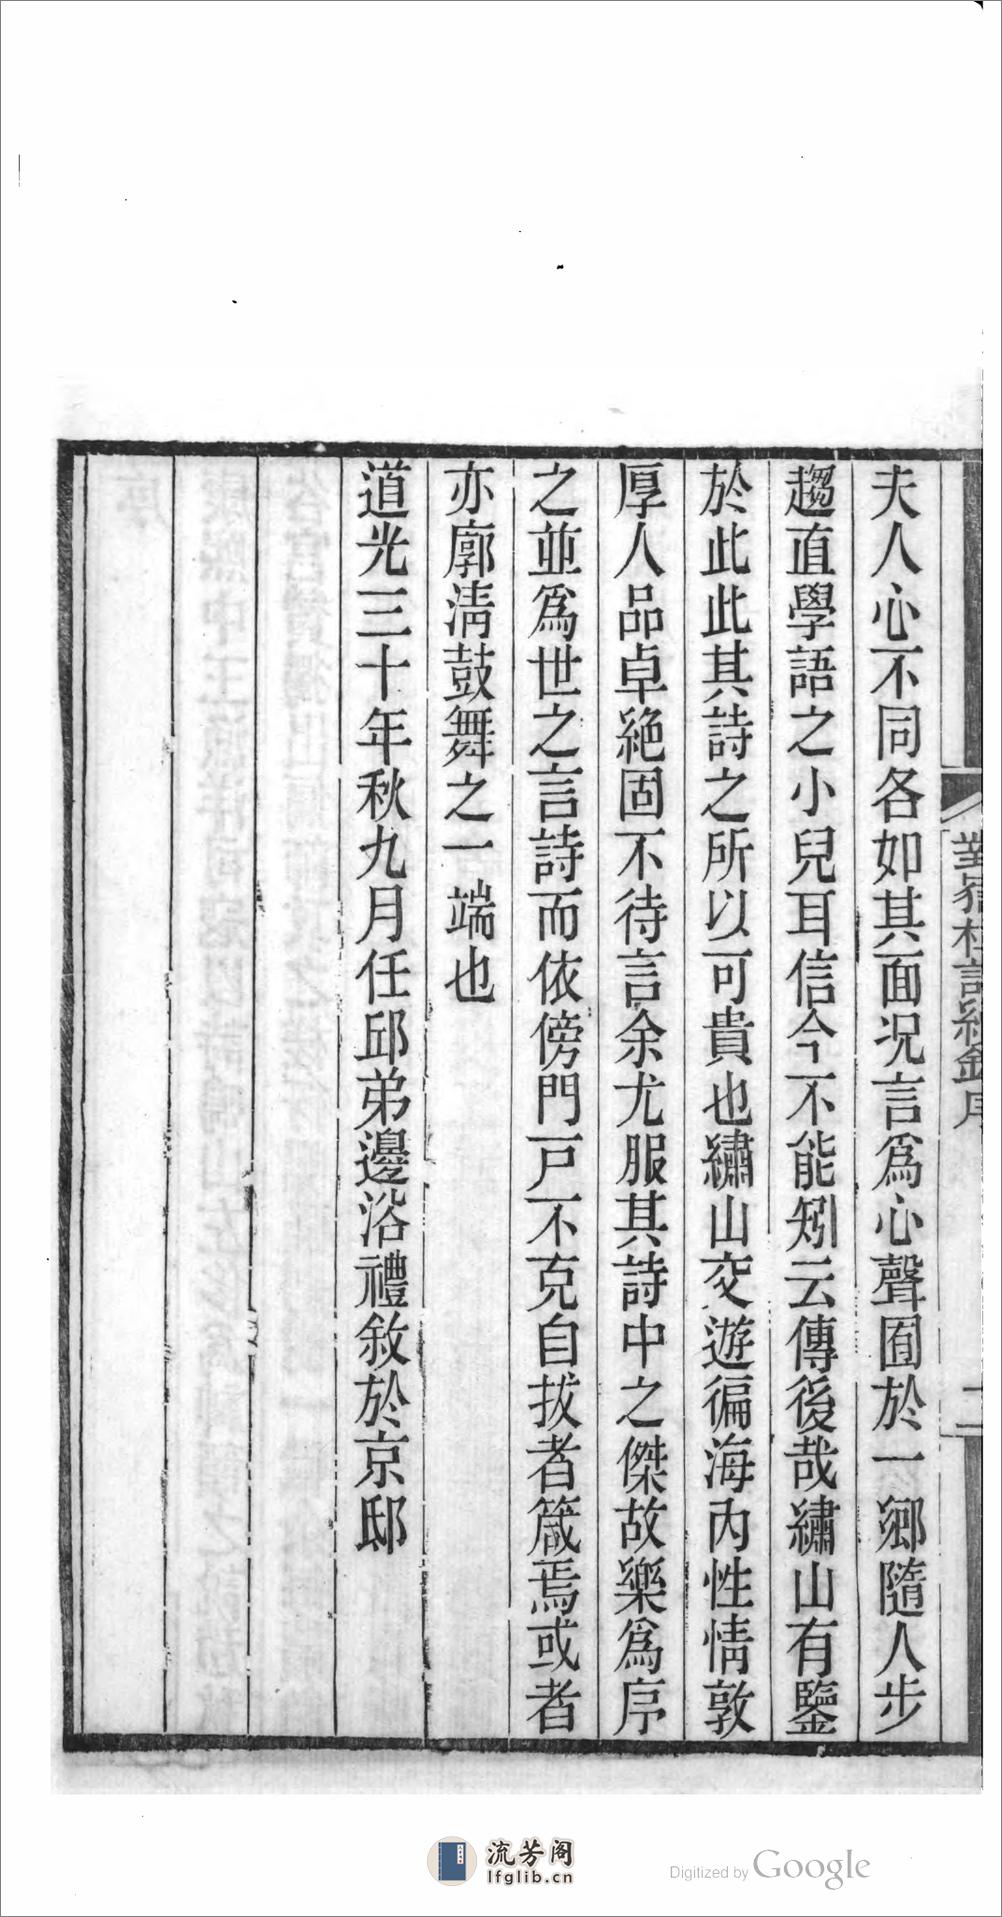 夫人心不同各如其面况言爲心聲囿於一鄉隨人步
趨直學語之小兒耳信今不能矧云傳後哉繡山有鑒
於此此其詩之所以可貴也繡山交遊徧海內性情敦
厚人品卓絕固不待言余尤服其詩中之傑故樂爲序
之並爲世之言詩而依傍門戶不克自拔者箴焉或者
亦廓淸鼓舞之一端也
道光三十年秋九月任邱弟邊浴禮敘於京邸
序
二
流芳阁
lfglib.cn
Digitized by Google